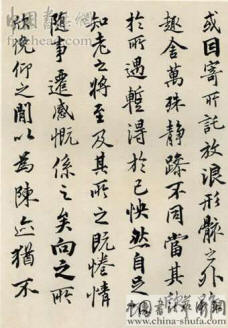 或因寄所託放浪形骸之外
趣舍萬殊静躁不同當其欣
於所遇暫得於己怏然自足
知老之將至及其所之既惓情
隨事遷感慨係之矣向之所
欣俛仰之閒以為陳迹猶不
中国书法网
www.china-shufa.com